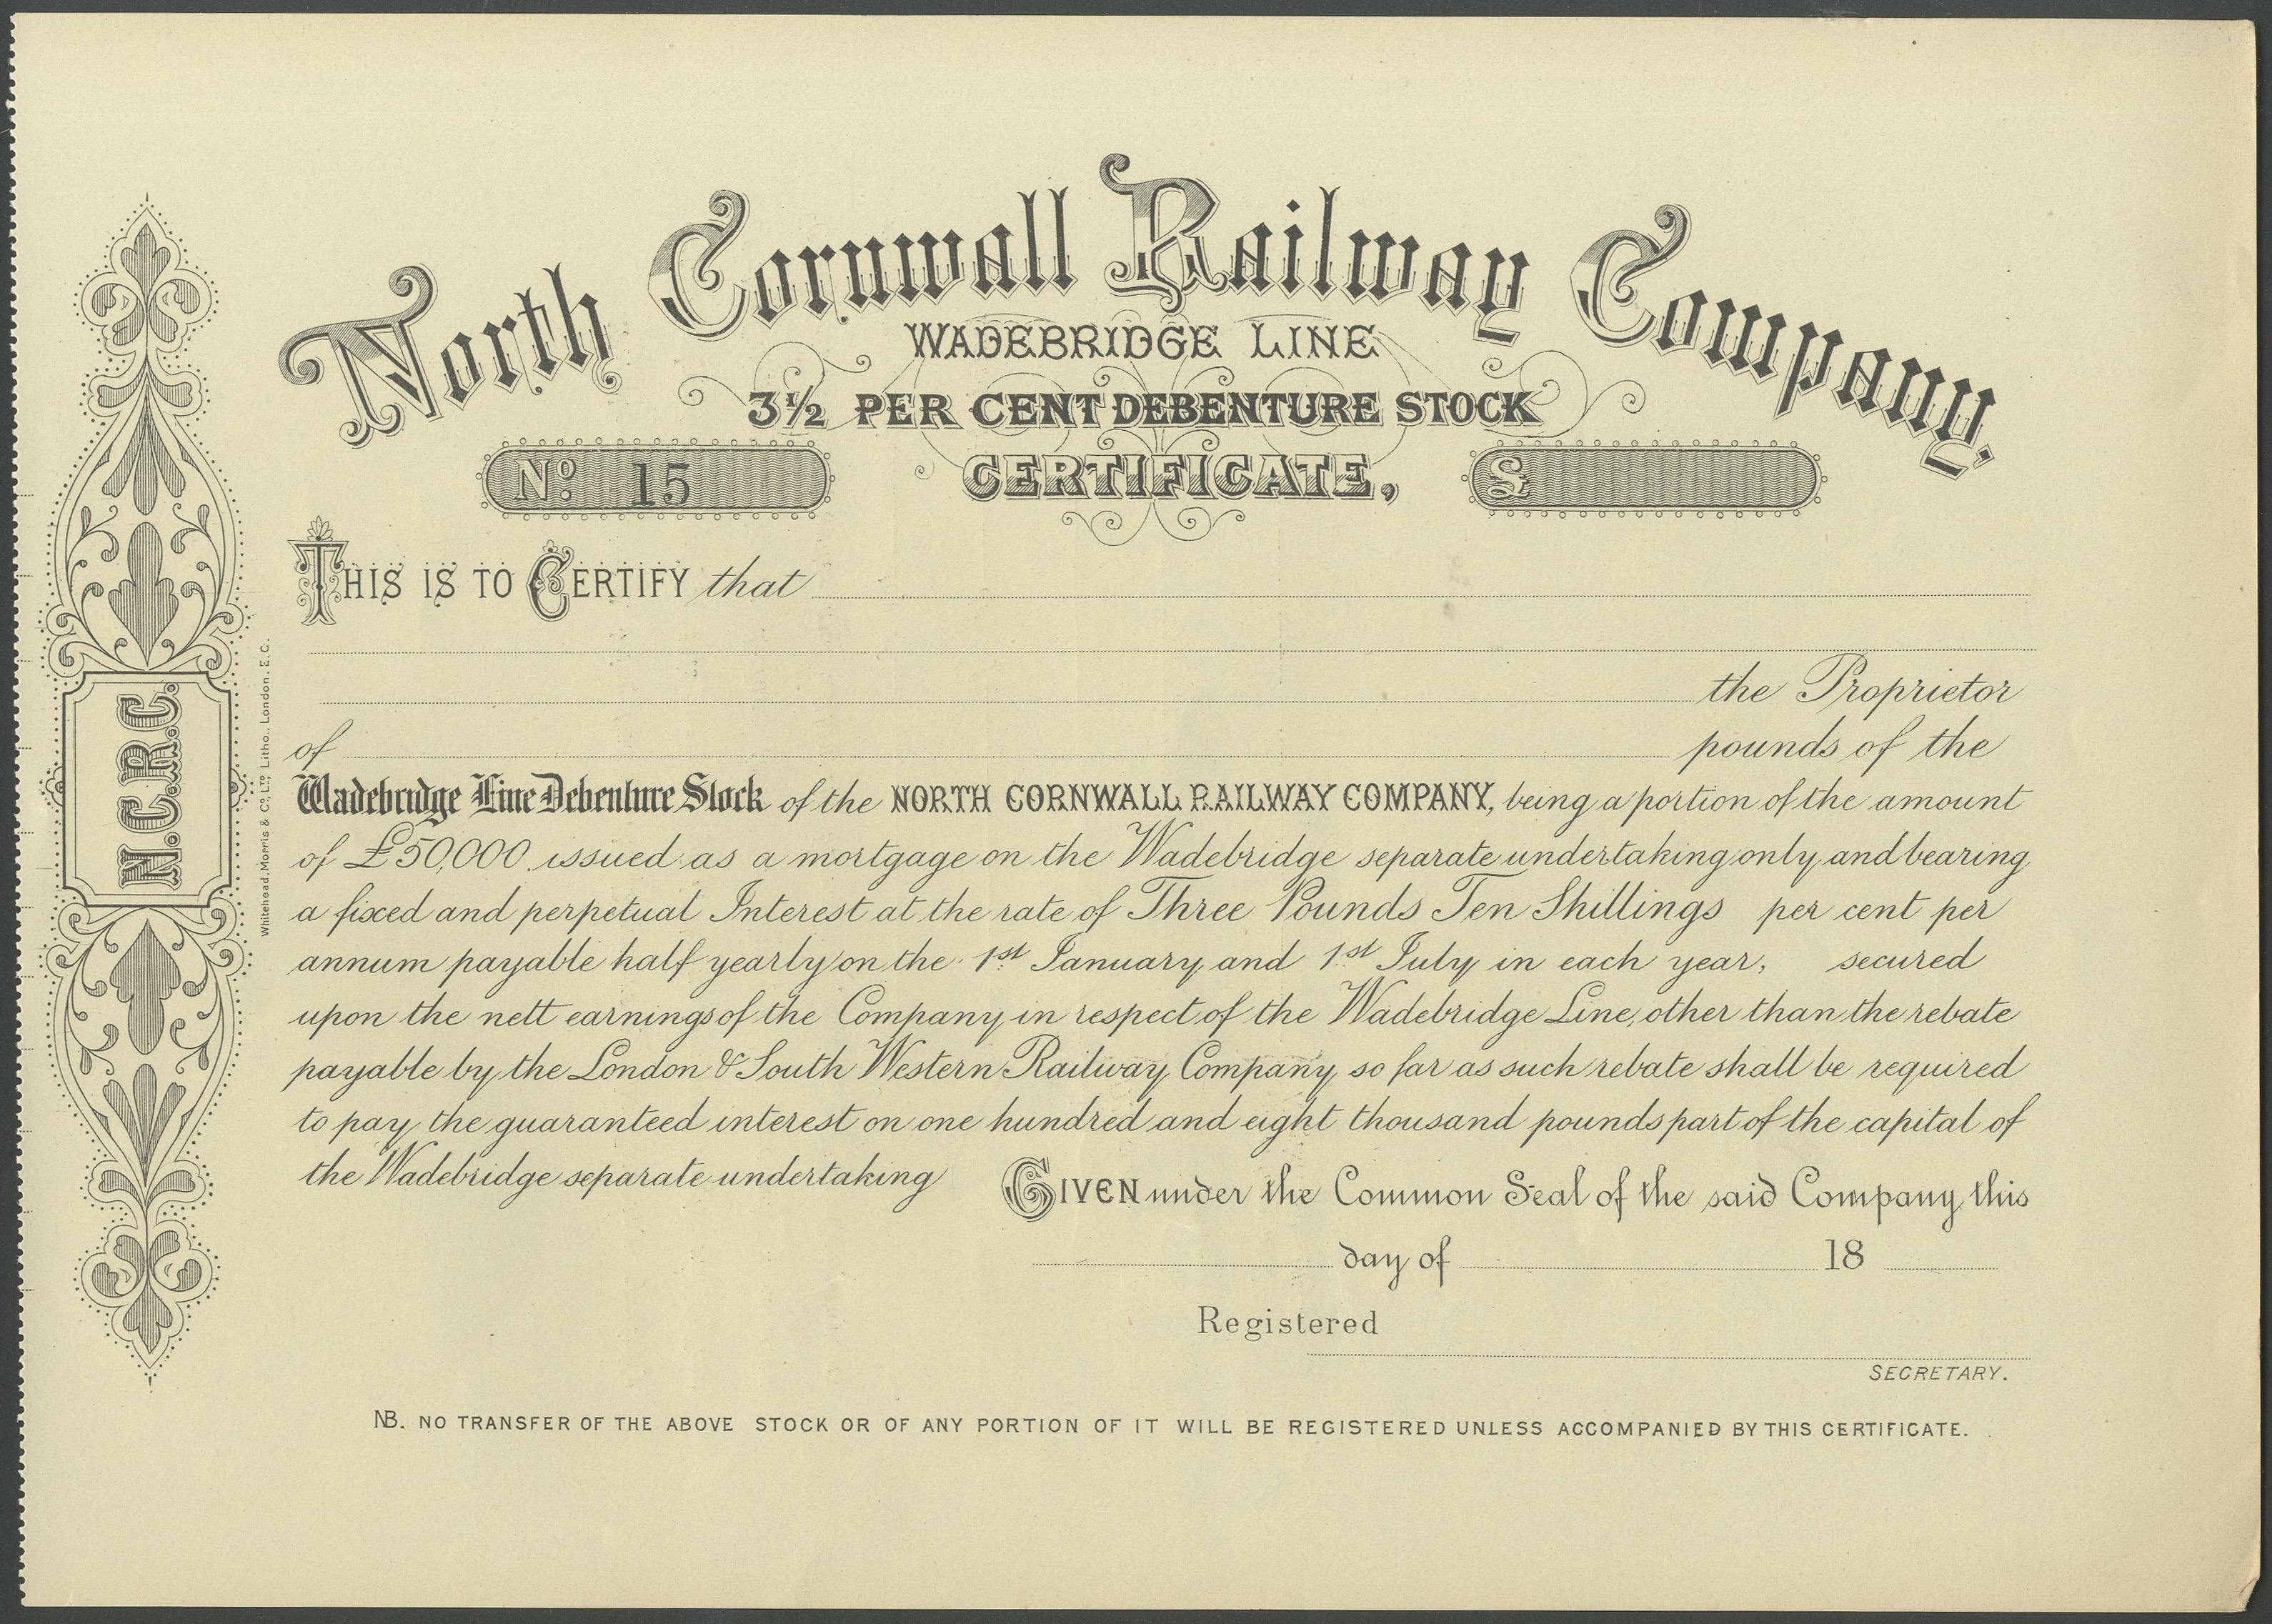 North Cornwall Railway Company.
WADEBRIDGE LINE
3½ PER CENT DEBENTURE STOCK
Nº 15
CERTIFICATE,
£
THIS IS TO CERTIFY that
the Proprietor
of pounds of the
Wadebridge Line Debenture Stock of the NORTH CORNWALL RAILWAY COMPANY, being a portion of the amount
of £50,000 issued as a mortgage on the Wadebridge separate undertaking only, and bearing
a fixed and perpetual Interest at the rate of Three Pounds Ten Shillings per cent per
annum payable half yearly on the 1st January, and 1st July in each year, secured
upon the nett earnings of the Company, in respect of the Wadebridge Line, other than the rebate
payable by the London & South Western Railway Company so far as such rebate shall be required
to pay the guaranteed interest on one hundred and eight thousand pounds part of the capital of
the Wadebridge separate undertaking
GIVEN under the Common Seal of the said Company, this
day of 18
Registered
SECRETARY.
NB. NO TRANSFER OF THE ABOVE STOCK OR OF ANY PORTION OF IT WILL BE REGISTERED UNLESS ACCOMPANIED BY THIS CERTIFICATE.
N.C.R.C.
Whitehead, Morris & Co. LTD, Litho., London, E.C.